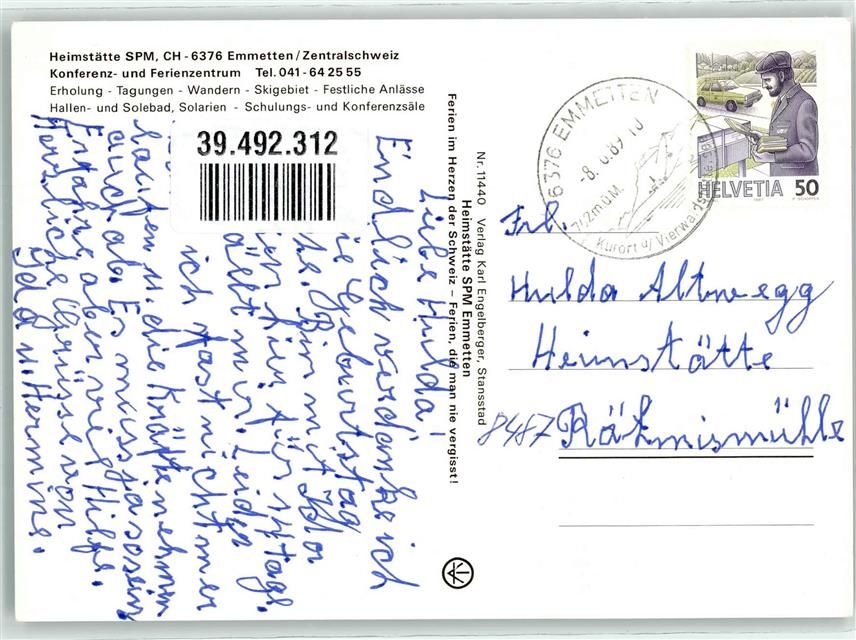 Heimstätte SPM, CH-6376 Emmetten/Zentralschweiz
Konferenz- und Ferienzentrum Tel. 041-64 25 55
Erholung - Tagungen - Wandern - Skigebiet - Festliche Anlässe
Hallen- und Solebad, Solarien - Schulungs- und Konferenzsäle
39.492.312
Liebe Hulda!
Endlich verdanke ich
Geburtstag
Bin mit Ida
hier für 14 Tage.
Leider
mir
ich fast nicht mer
laufen u. die Kräfte nehmen
auch ab. Es muss ja so sein
Erfahre aber viel Hilfe.
Herzliche Grüsse von
Ida u. Hermine.
Nr. 11440 Verlag Karl Engelberger, Stansstad
Heimstätte SPM Emmetten
Ferien im Herzen der Schweiz – Ferien, die man nie vergisst!
6376 EMMETTEN
-8.6.89 10
792müM.
Kurort
HELVETIA 50
Frl.
Hulda Altwegg
Heimstätte
8487 Rämismühle